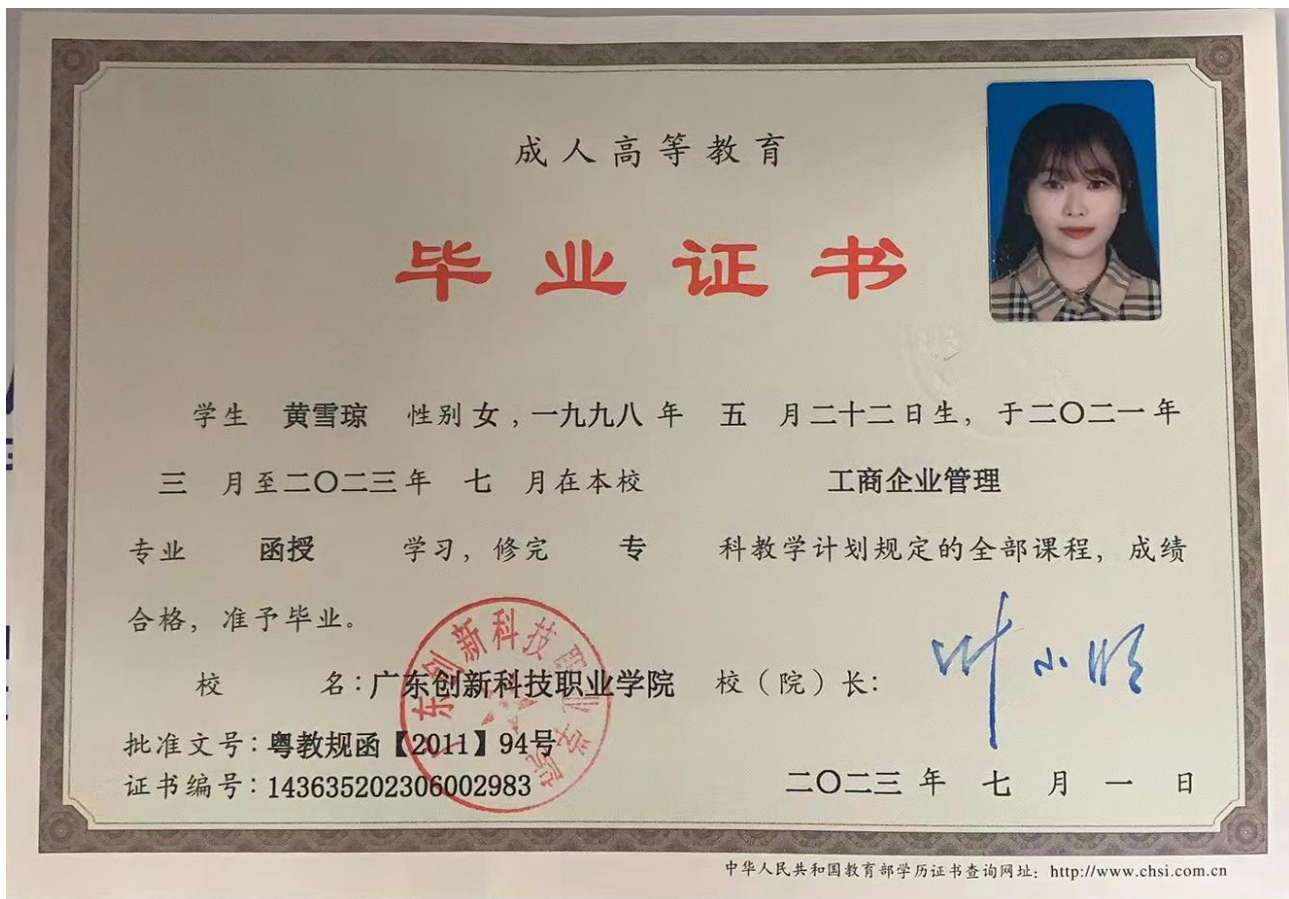 成人高等教育
毕业证书
学生 黄雪琼 性别 女，一九九八 年 五 月二十二日生，于二〇二一年
三 月至二〇二三年 七 月在本校 工商企业管理
专业 函授 学习，修完 专 科教学计划规定的全部课程，成绩
合格，准予毕业。
校 名：广东创新科技职业学院 校（院）长：
批准文号：粤教规函【2011】94号
证书编号：143635202306002983 二〇二三 年 七 月 一 日
广东创新科技职业学院
中华人民共和国教育部学历证书查询网址：http://www.chsi.com.cn